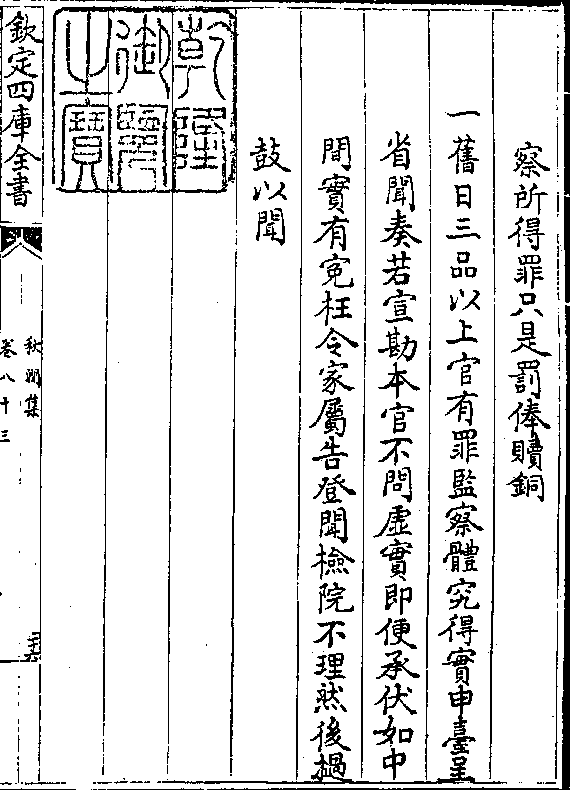 察所得罪只是罰俸贖銅
一舊日三品以上官有罪監察體究得實申臺呈
省聞奏若宣勘本官不問虛實即便承伏如中
間實有寃枉令家屬告登聞檢院不理然後撾
鼓以聞
乾隆
御覽
之寶
欽定四庫全書
秋澗集
卷八十三